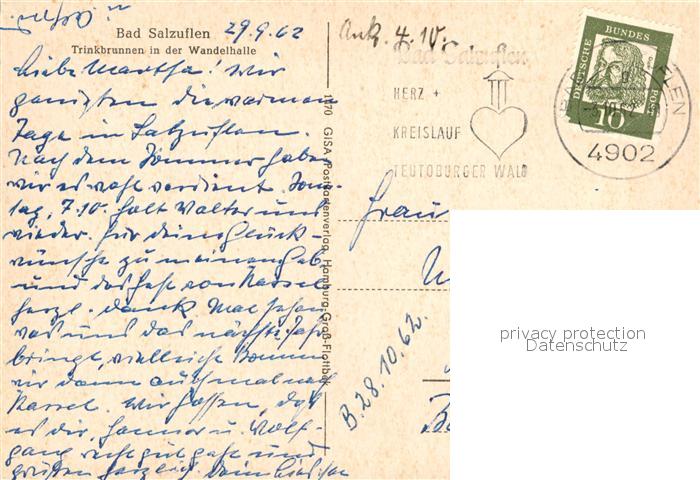 Bad Salzuflen 29.9.62
Trinkbrunnen in der Wandelhalle
Liebe Martha! Wir
genießen die warmen
Tage in Salzuflen.
Nach dem Sommer haben
wir es wohl verdient. Sonn-
tag, 7.10. holt Walter uns
wieder. Für deine Glück-
wünsche zu meinem Geb.
und das Fest von Kassel
herzl. Dank. Mal sehen,
was uns das nächste Jahr
bringt, vielleicht kommen
wir dann auch mal nach
Kassel. Wir hoffen, daß
es dir, Hannor u. Wolf-
gang recht gut geht und
grüßen herzlich. Deine
1170 GISA Postkartenverlag, Hamburg-Groß-Flottbek
Ank. 4.10.
Bad Salzuflen
HERZ +
KREISLAUF
TEUTOBURGER WALD
DEUTSCHE BUNDESPOST
10
4902
Frau
B. 28.10.62.
privacy protection
Datenschutz